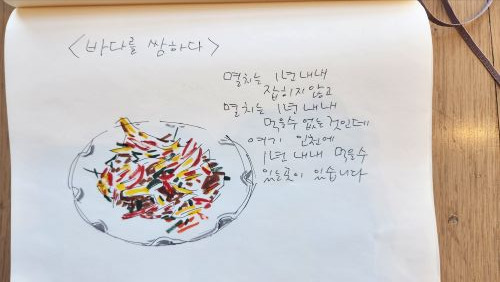 <바다를 쌈하다>
멸치는 1년 내내
잡히지 않고
멸치는 1년 내내
먹을수 없는 것인데
여기 인천에
1년 내내 먹을수
있는곳이 있습니다